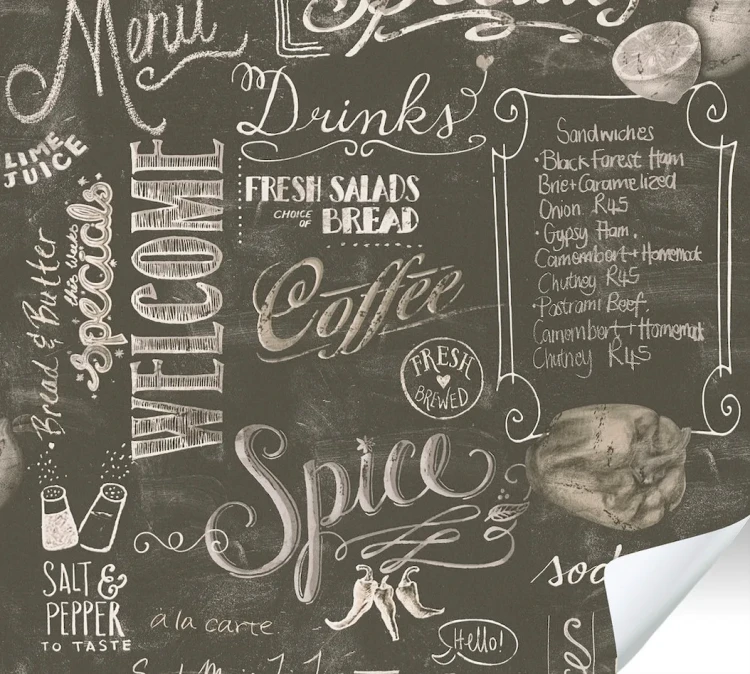 Menu
Specials
Drinks
LIME
JUICE
WELCOME
this weeks
Specials
Bread & Butter
FRESH SALADS
CHOICE
OF
BREAD
Coffee
FRESH
BREWED
Sandwiches
• Black Forest Ham
Brie + Caramelized
Onion R45
• Gypsy Ham.
Camembert + Homemade
Chutney R45
• Pastrami Beef
Camembert + Homemade
Chutney R45
Spice
SALT &
PEPPER
TO TASTE
à la carte
Hello!